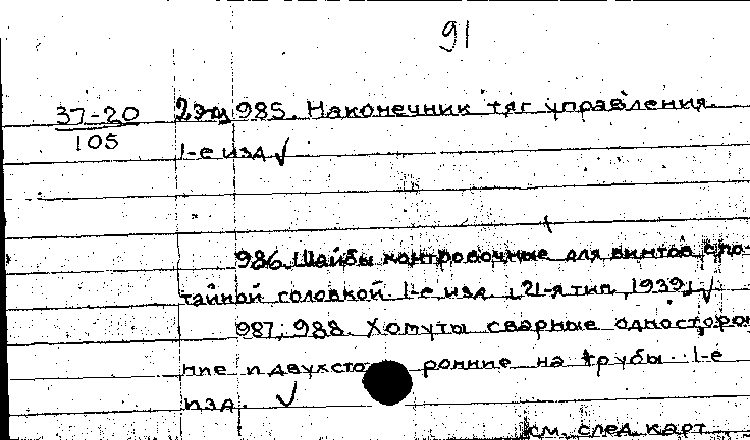 91
37-20 2 экз 985. Наконечник тяг управления.
105
1-е изд ✓
986. Шайбы контровочные для винтов с по-
тайной головкой. 1-е изд. [21-я тип, 1939] ✓
987; 988. Хомуты сварные односторон
ние и двухсто ронние на трубы. 1-е
изд. ✓
см. след. карт.